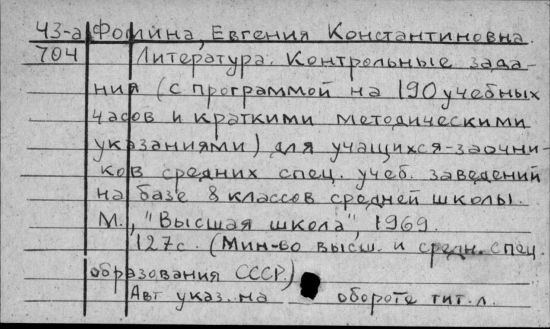 43-а Фомина, Евгения Константиновна.
704 Литература. Контрольные зада-
ния (с программой на 190 учебных
часов и краткими методическими
указаниями) для учащихся-заочни-
ков средних спец. учеб. заведений
на базе 8 классов средней школы.
М., "Высшая школа", 1969.
127с. (Мин-во высш. и средн. спец.
образования СССР.)
Авт указ. на обороте тит. л.